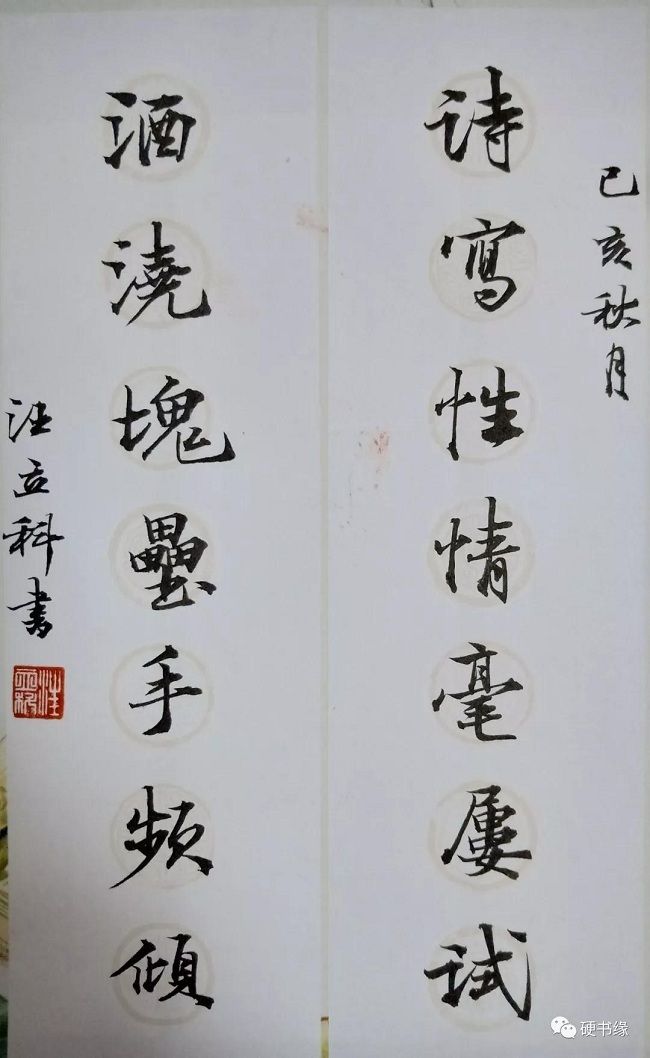 己亥秋月
诗寫性情毫屢试
酒澆塊壘手频傾
汪立科书
汪立科
硬书缘